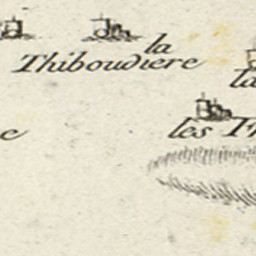 la
Thiboudiere
la
les